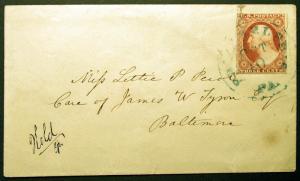 U.S. POSTAGE
THREE CENTS
Miss Lettie P
Care of James W Tyson Esq
Baltimore
PA